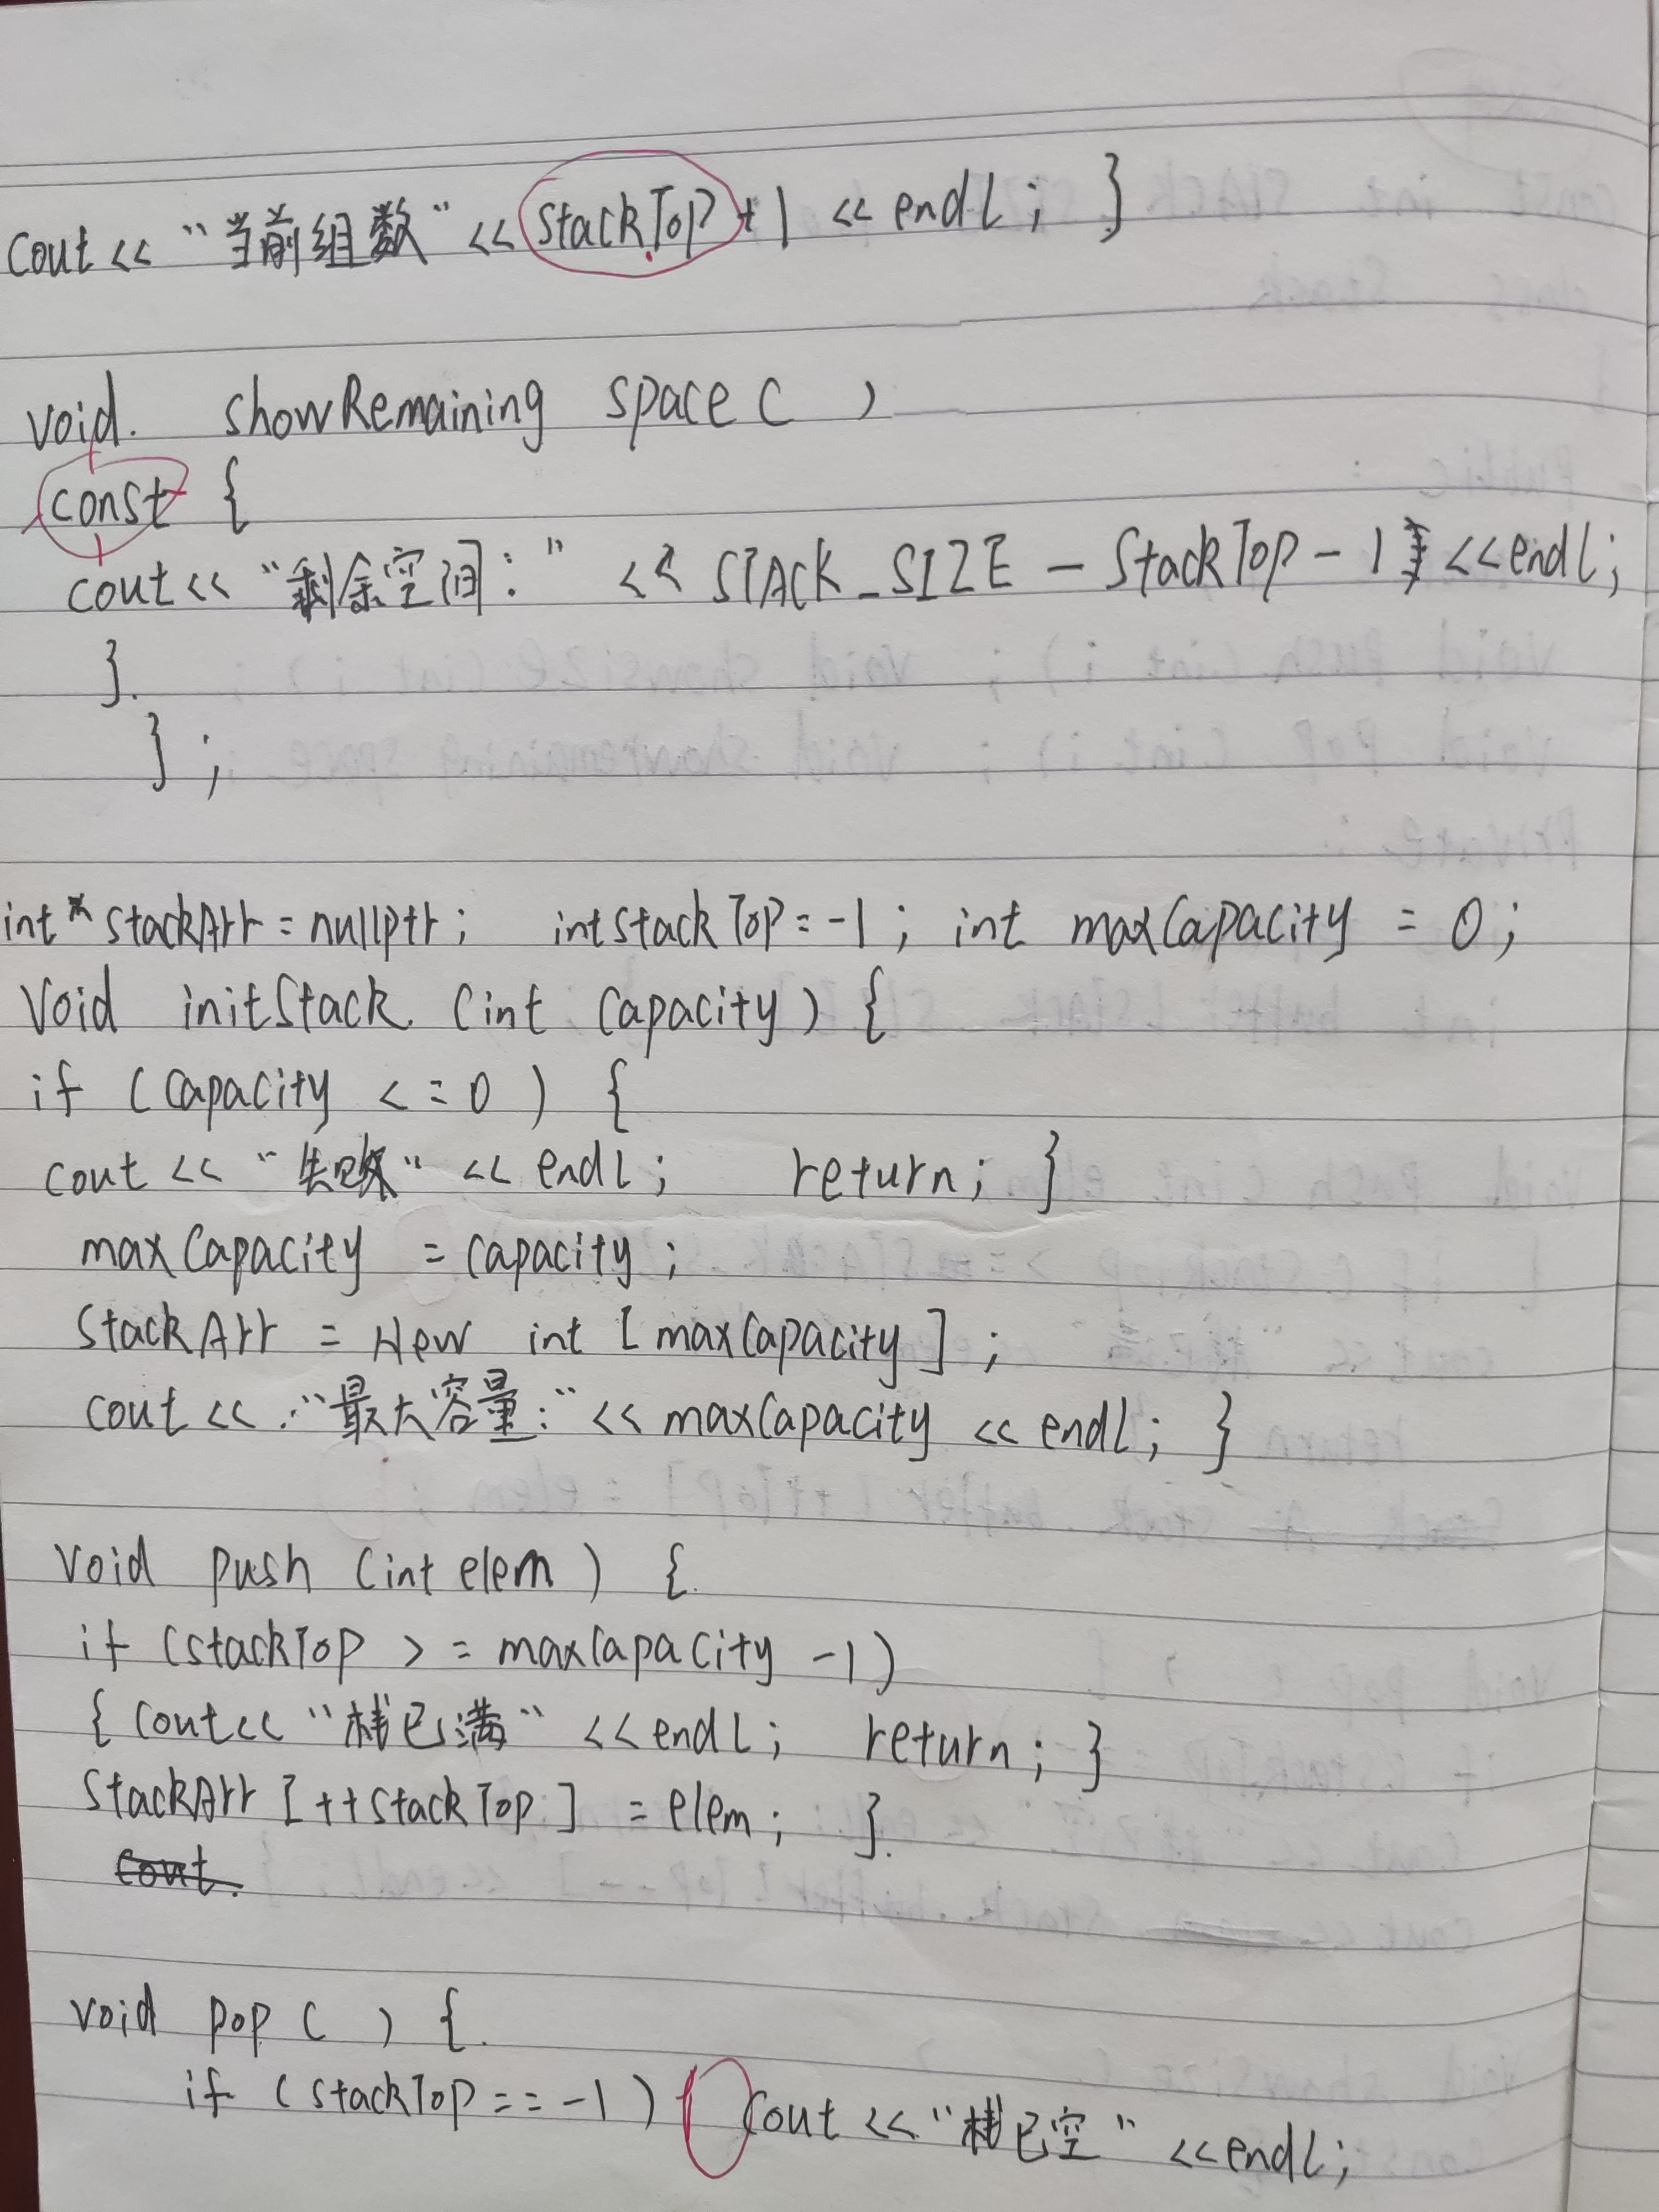 cout << "当前组数" << stackTop + 1 << endl; }
void. showRemaining space ( )
const {
cout << "剩余空间:" << STACK_SIZE - StackTop - 1 << endl;
}.
};
int* stackArr = nullptr; int stackTop = -1; int maxCapacity = 0;
void initStack (int capacity) {
if (capacity <= 0) {
cout << "失败" << endl; return; }
maxCapacity = capacity;
StackArr = New int [maxCapacity];
cout << "最大容量:" << maxCapacity << endl; }
void push (int elem) {
if (stackTop >= maxCapacity -1)
{ cout << "栈已满" << endl; return; }
StackArr [++stackTop] = elem; }
cout.
void pop ( ) {
if (stackTop == -1) cout << "栈已空" << endl;